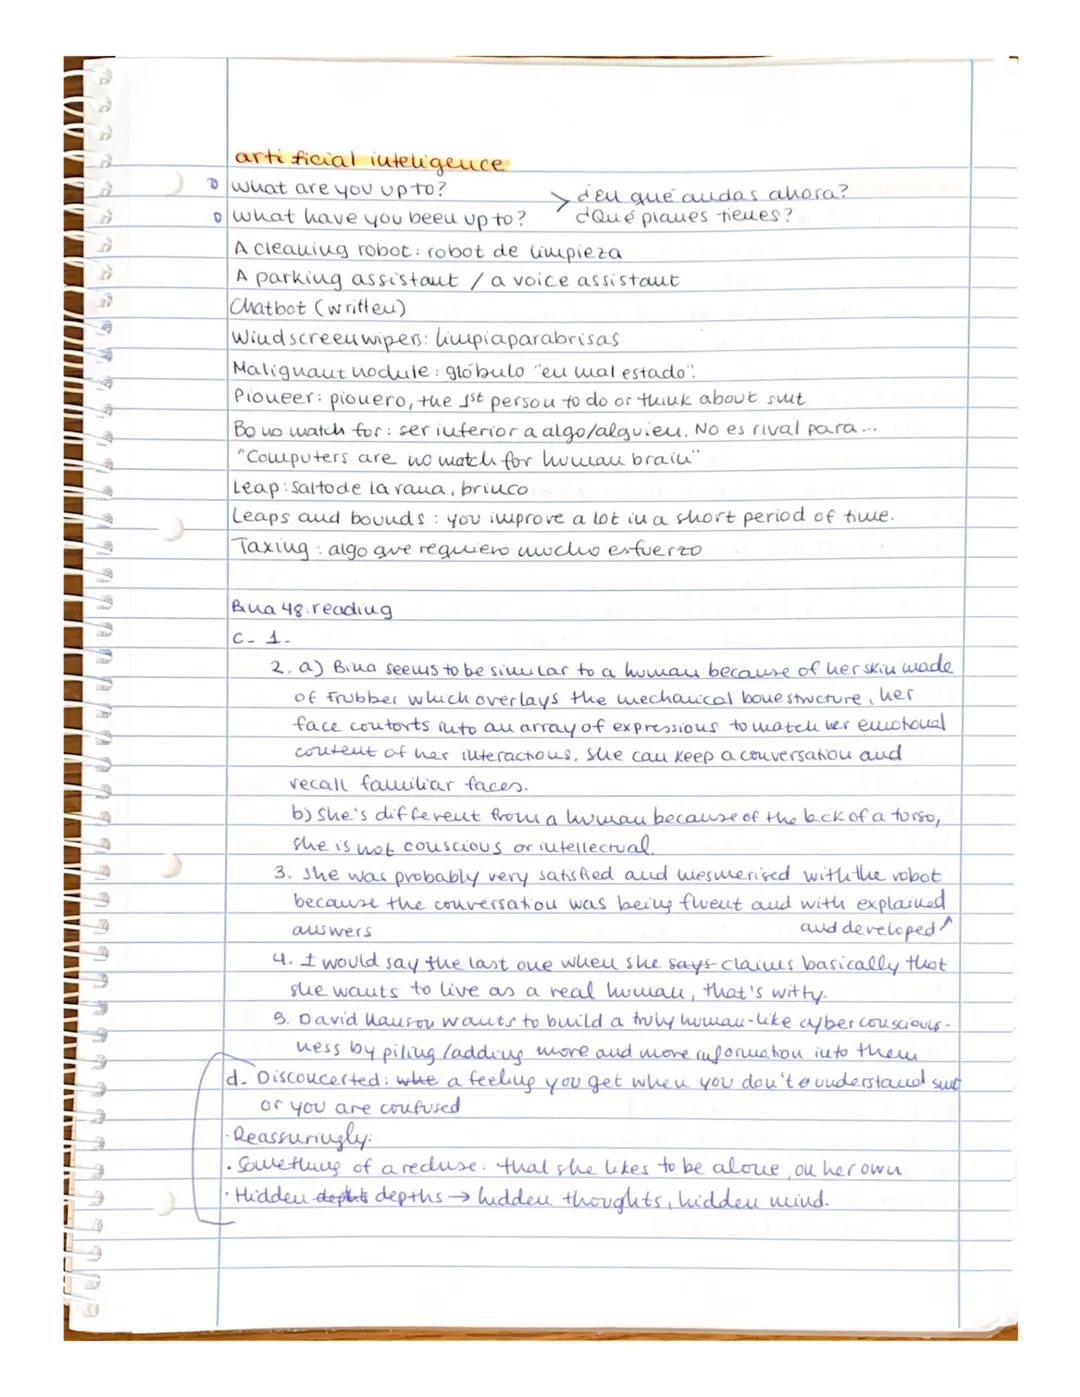 artificial inteligence
What are you up to? > ¿En qué andas ahora?
What have you been up to? ¿Qué planes tienes?
A cleaning robot: robot de limpieza
A parking assistant / a voice assistant
Chatbot (written)
Windscreen wipers: limpiaparabrisas
Malignant nodule: glóbulo "en mal estado".
Pioneer: pionero, the 1st person to do or think about smt
Be no match for: ser inferior a algo/alguien. No es rival para...
"Computers are no match for human brain"
Leap: salto de la rana, brinco
Leaps and bounds: you improve a lot in a short period of time.
Taxing: algo que requiero mucho esfuerzo
Bina 48: reading
C- 1-
2. a) Bina seems to be similar to a human because of her skin made
of Frubber which overlays the mechanical bone structure, her
face contorts into an array of expressions to match her emotional
content of her interactions. She can keep a conversation and
recall familiar faces.
b) She's different from a human because of the lack of a torso,
she is not conscious or intellectual.
3. She was probably very satisfied and mesmerised with the robot
because the conversation was being fluent and with explained
answers and developed
4. I would say the last one when she says claims basically that
she wants to live as a real human, that's witty.
5. David Hanson wants to build a truly human-like cyber conscious-
ness by piling/adding more and more information into them
d- Disconcerted: whe a feeling you get when you don't understand smt
or you are confused
·Reassuringly:
·Something of a recluse: that she likes to be alone, on her own
·Hidden depths → hidden thoughts, hidden mind.